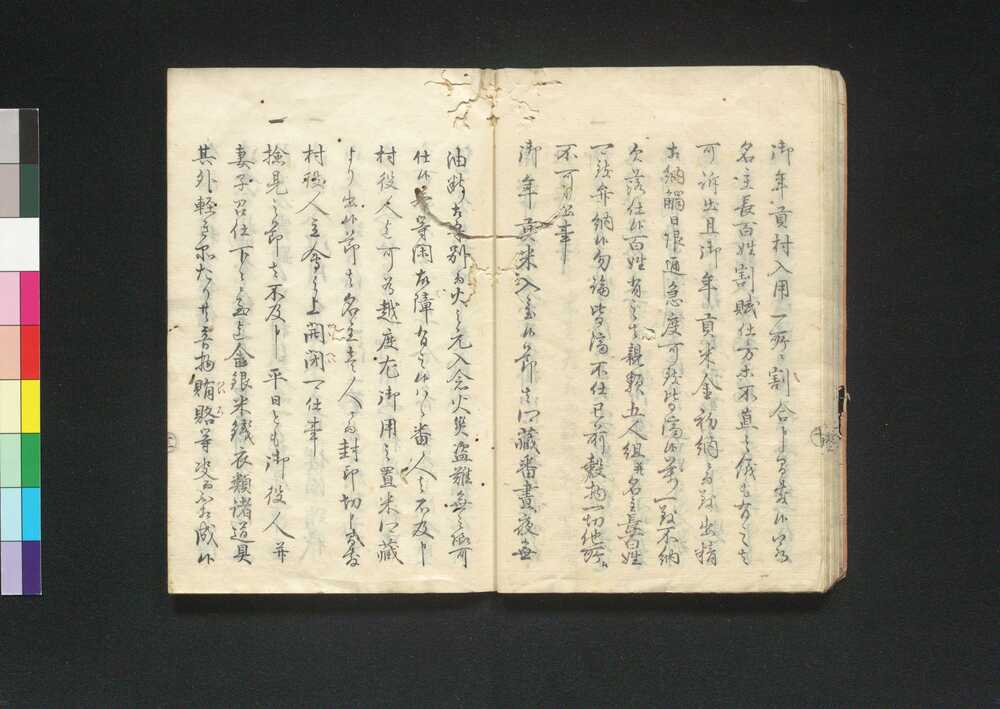 御年貢村入用一所ニ割合申間敷候
名主長百姓割賦仕万一不直之儀も有之ハ
可訴出且御年貢米金初納ゟ致出精
古納觸日限通急度可致皆済候万一致不納
欠落仕候百姓有之ハ親類五人組并名主長百姓
可致弁納候勿論皆済不仕已前穀物一切他所江
不可出事
御年貢米入置候節者郷藏番晝夜無
油断相守別而火之元入念火災盗難無之様可
仕候等閑故障有之候ハヽ番人者不及申
村役人迄可為越度尤御用之置米郷藏
より出候節者名主壱人ニ而封印切申間敷
村役人立會之上開閉可仕事
一檢見之節者不及申平日とも御役人并
妻子召仕下々迄金銀米錢衣類諸道具
其外輕き品たり共音物賄賂等差出候